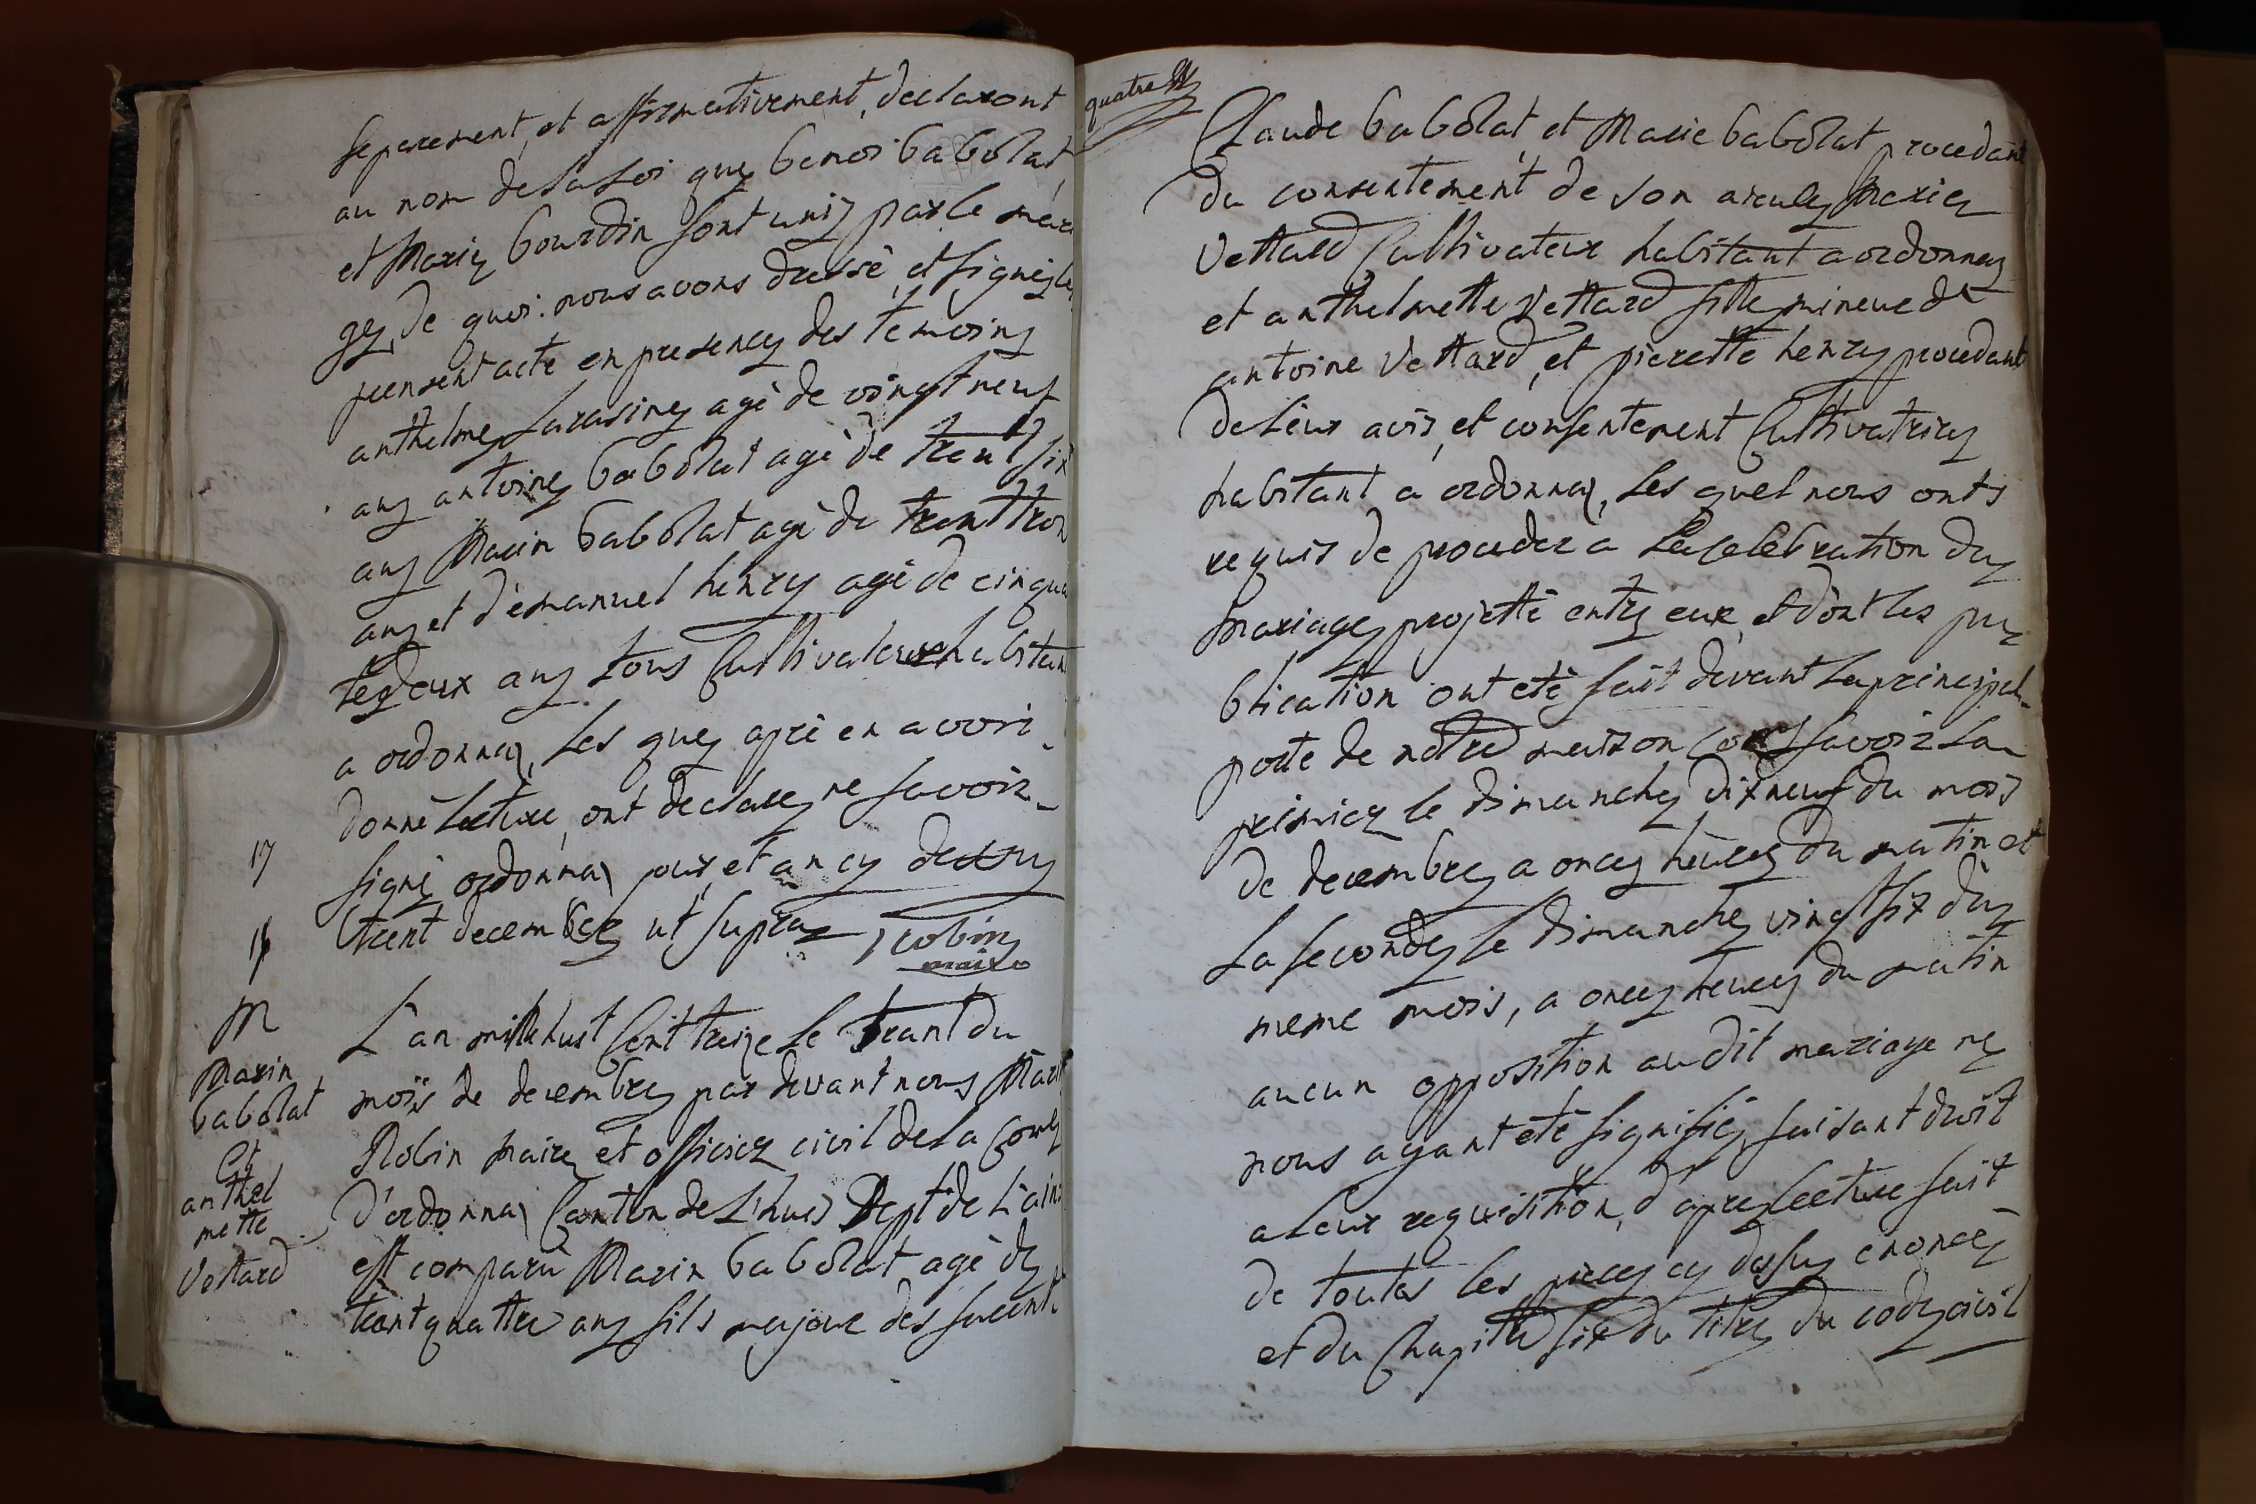 separement, et affirmativement, declaront
au nom de la Loi que benoi babolat
et Marie bourdin sont unis par le maria
ge, de quoi nous avons dressé, et signé, le
presentacte en presence des temoins
anthelme Larasine agé de vingt neuf
ans antoine babolat agé de trent six
ans Marin babolat agé de trent troi
ans et d'emanuel henry agé de cinqua
te deux ans tous Cultivateurs habitan
a ordonna, Les ques apré en avoir
donné Lecture, ont declare ne savoir
signé ordonna jour, et an cy dessu
trent decembre ut supra Robin
maire
17
M
Marin
babolat
et
anthel
mette
Vettard
L'an mille huit Cent treize le trant du
mois de decembre par devant nous Mari
Robin Maire et officier civil de la Come
d'ordonna Canton de L'hui Dept de L'ain
est comparu Marin babolat agé de
trent quattre ans fils majour des
quatre
Claude babolat, et Marie babolat procedant
du consentement de son aieule Marie
Vettard Cultivateur habitant a ordonna
et anthelmette Vettard fille mineue de
antoine Vettard, et pierette henry procedant
de Leur avis, et consentement Cultivatrice
habitant a ordonna, Les quel nous onts
requis de proceder a La celebration du
Mariage projetté entre eux, et dont les pu
blication ont eté fait devant La principal
porte de notre maison Come savoir La
primier le dimanche dix neuf du mois
de decembre a once heures du matin et
La seconde le dimanche vingt six du
meme mois, a once heures du matin
aucun opposition audit mariage ne
nous ayant eté signifié, faisant droit
a Leur requisition, d'apres Lecture fait
de toutes les pieces cy dessus enoncés
et du Chapitre six du titre du code civil